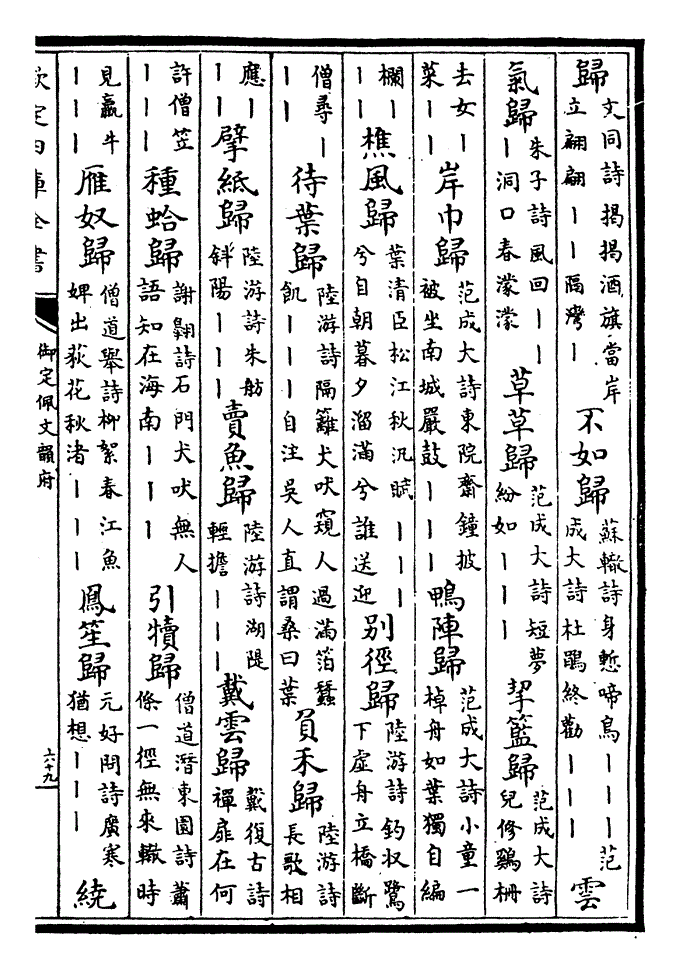 歸 文同詩揭揭酒旗當岸立翩翩丨丨隔灣丨 不如歸 蘇轍詩身慙啼鳥丨丨丨范成大詩杜鵑終勸丨丨丨 雲
氣歸 朱子詩風回丨丨丨洞口春濛濛 草草歸 范成大詩短夢紛如丨丨丨 挈籃歸 范成大詩兒修鷄柵
去女丨菜丨丨 岸巾歸 范成大詩東院齋鐘披被坐南城嚴鼓丨丨丨 鴨陣歸 范成大詩小童一棹舟如葉獨自編
欄丨丨丨 樵風歸 葉清臣松江秋汎賦丨丨丨兮自朝暮夕溜滿兮誰送迎 别徑歸 陸游詩釣收鷺下虚舟立橋斷
僧尋丨丨丨 待葉歸 陸游詩隔籬犬吠窺人過滿箔蠶飢丨丨丨自注吳人直謂桑曰葉 負禾歸 陸游詩長歌相
應丨丨丨 擘紙歸 陸游詩朱舫陽丨丨丨 賣魚歸 陸游詩湖隄輕擔丨丨丨 戴雲歸 戴復古詩禪扉在何
許僧笠丨丨丨 種蛤歸 謝翱詩石門犬吠無人語知在海南丨丨丨 引犢歸 僧道潛東園詩蕭條一徑無來轍時
見羸牛丨丨丨 雁奴歸 僧道舉詩柳絮春江魚婢出荻花秋渚丨丨丨 鳳笙歸 元好問詩廣寒猶想丨丨丨 繞
欽定四庫全書
御定佩文韻府
六十九